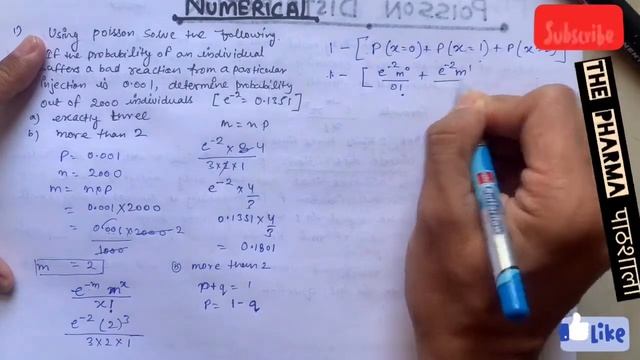 POISSON DIS
NUMERICAL
1) Using poisson solve the following.
If the probability of an individual
suffers a bad reaction from a particular
injection is 0.001, determine probability
out of 2000 individuals [e⁻² = 0.1351]
a) exactly three
b) more than 2
P = 0.001
n = 2000
m = n×p
= 0.001 × 2000
= 0.001 × 2000 2
1000
m = 2
e⁻ᵐ mˣ
x!
e⁻² (2)³
3 × 2 × 1
m = np
e⁻² × 8 4
3 × 2 × 1
e⁻² × 4
3
0.1351 × 4
3
= 0.1801
(ii) more than 2
p+q = 1
P = 1 - q
1 - [P(x=0) + P(x=1) + P(x=
1 - [e⁻² m⁰ + e⁻² m¹
0!
Subscribe
THE PHARMA पाठशाला
Like